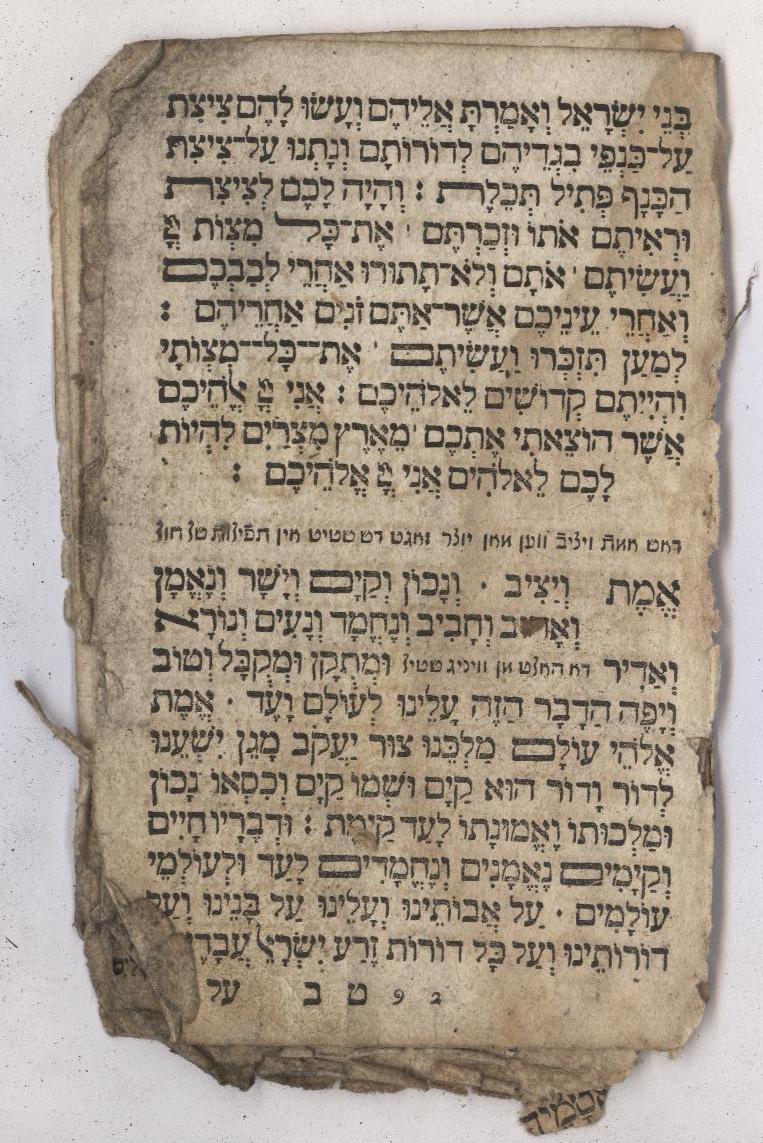 בְּנֵי יִשְׂרָאֵל וְאָמַרְתָּ אֲלֵיהֶם וְעָשׂוּ לָהֶם צִיצִת
עַל־כַּנְפֵי בִגְדֵיהֶם לְדוֹרוֹתָם וְנָתְנוּ עַל־צִיצִת
הַכָּנָף פְּתִיל תְּכֵלֶת : וְהָיָה לָכֶם לְצִיצִת
וּרְאִיתֶם אֹתוֹ וּזְכַרְתֶּם ׀ אֶת־כָּל מִצְוֹת יְיָ
וַעֲשִׂיתֶם ׀ אֹתָם וְלֹא־תָתוּרוּ אַחֲרֵי לְבַבְכֶם
וְאַחֲרֵי עֵינֵיכֶם אֲשֶׁר־אַתֶּם זֹנִים אַחֲרֵיהֶם :
לְמַעַן תִּזְכְּרוּ וַעֲשִׂיתֶם ׀ אֶת־כָּל־מִצְוֹתָי
וִהְיִיתֶם קְדוֹשִׁים לֵאלֹהֵיכֶם : אֲנִי יְיָ אֱלֹהֵיכֶם
אֲשֶׁר הוֹצֵאתִי אֶתְכֶם ׀ מֵאֶרֶץ מִצְרַיִם לִהְיוֹת
לָכֶם לֵאלֹהִים אֲנִי יְיָ אֱלֹהֵיכֶם :
דאש אמת ויציב ווען מאן יוצר זאגט דש שטיט אין תפילות
אֱמֶת וְיַצִּיב · וְנָכוֹן וְקַיָּם וְיָשָׁר וְנֶאֱמָן
וְאָהוּב וְחָבִיב וְנֶחְמָד וְנָעִים וְנוֹרָא
וְאַדִּיר דא האלט מן וויניג שטיל וּמְתֻקָּן וּמְקֻבָּל וְטוֹב
וְיָפֶה הַדָּבָר הַזֶּה עָלֵינוּ לְעוֹלָם וָעֶד · אֱמֶת
אֱלֹהֵי עוֹלָם מַלְכֵּנוּ צוּר יַעֲקֹב מָגֵן יִשְׁעֵנוּ
לְדוֹר וָדוֹר הוּא קַיָּם וּשְׁמוֹ קַיָּם וְכִסְאוֹ נָכוֹן
וּמַלְכוּתוֹ וֶאֱמוּנָתוֹ לָעַד קַיֶּמֶת : וּדְבָרָיו חָיִים
וְקַיָּמִים נֶאֱמָנִים וְנֶחֱמָדִים לָעַד וּלְעוֹלְמֵי
עוֹלָמִים · עַל אֲבוֹתֵינוּ וְעָלֵינוּ עַל בָּנֵינוּ וְעַל
דוֹרוֹתֵינוּ וְעַל כָּל דוֹרוֹת זֶרַע יִשְׂרָאֵל
2 9 ט ב על